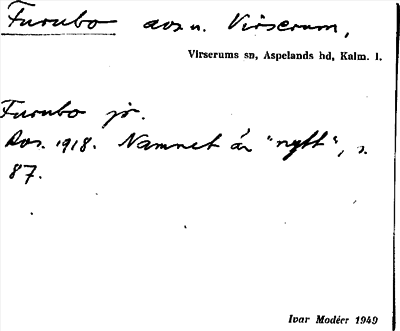 Furubo avs. u. Virserum,
Virserums sn, Aspelands hd, Kalm. l.
Furubo jr.
Avs. 1918. Namnet är "nytt", s.
87.
Ivar Modéer 1949